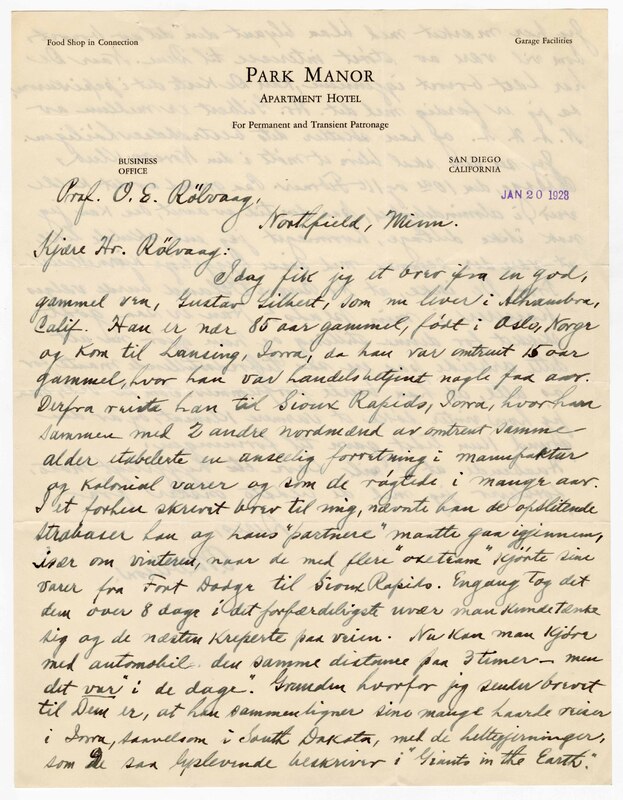 Food Shop in Connection
Garage Facilities
PARK MANOR
APARTMENT HOTEL
For Permanent and Transient Patronage
BUSINESS
OFFICE
SAN DIEGO
CALIFORNIA
JAN 20 1928
Prof. O. E. Rölvaag,
Northfield, Minn.
Kjære Hr. Rölvaag:
Idag fik jeg et brev fra en god,
gammel ven, Gustav Gilbert, som nu lever i Alhambra,
Calif. Han er nær 85 aar gammel, født i Oslo, Norge
og kom til Lansing, Iowa, da han var omtrent 15 aar
gammel, hvor han var handelsbetjent nogle faa aar.
Derfra reiste han til Sioux Rapids, Iowa, hvor han
sammen med 2 andre nordmænd av omtrent samme
alder etablerte en anseelig forretning i manufaktur
og kolonial varer og som de røgtede i mange aar.
I et forhen skrevet brev til mig, nævnte han de opslitende
strabaser han og hans "partnere" maatte gaa igjennem,
især om vinteren, naar de med flere "oxeteam" kjørte sine
varer fra Fort Dodge til Sioux Rapids. Engang tog det
dem over 8 dage i det forfærdeligste uvær man kunde tænke
sig og de næsten kreperte paa veien. Nu kan man kjøre
med automobil den samme distanse paa 3 timer — men
det var "i de dage". Grunden hvorfor jeg sender brevet
til Dem er, at han sammenligner sine mange haarde reiser
i Iowa, saavelsom i South Dakota, med de heltegjerninger,
som De saa lyslevende beskriver i "Giants in the Earth".